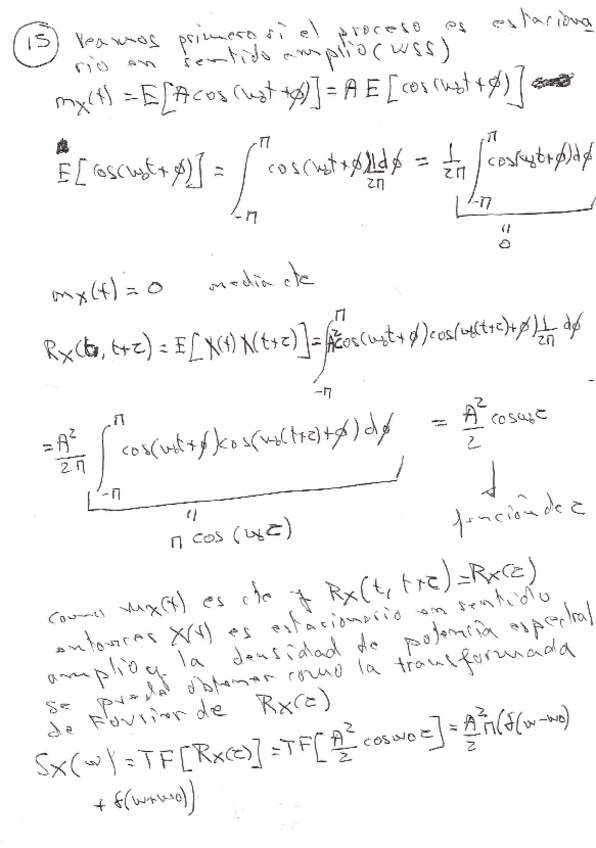 15 Veamos primero si el proceso es estaciona
rio en sentido amplio (WSS)
mx(t) = E[A cos(ω0t+φ)] = A E[cos(ω0t+φ)]
E[cos(ω0t+φ)] = ∫_{-π}^{π} cos(ω0t+φ) 1/2π dφ = 1/2π ∫_{-π}^{π} cos(ω0t+φ)dφ
"
0
mx(t) = 0 media cte
Rx(t, t+τ) = E[X(t) X(t+τ)] = ∫_{-π}^{π} A² cos(ω0t+φ) cos(ω0(t+τ)+φ) 1/2π dφ
= A²/2π ∫_{-π}^{π} cos(ω0t+φ) cos(ω0(t+τ)+φ) dφ = A²/2 cos ω0τ
"
π cos(ω0τ)
función de τ
Como mx(t) es cte y Rx(t, t+τ) = Rx(τ)
entonces X(t) es estacionario en sentido
amplio y la densidad de potencia espectral
se puede obtener como la transformada
de Fourier de Rx(τ)
Sx(w) = TF[Rx(τ)] = TF[A²/2 cos w0 τ] = A²/2 π(δ(w-w0)
+ δ(w+w0))